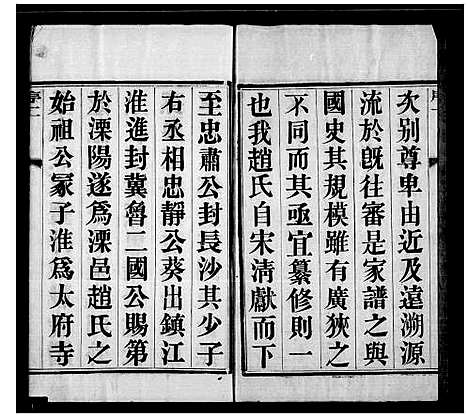 次別尊卑由近及遠溯源
流於旣往審是家譜之與
國史其規模雖有廣狹之
不同而其亟宜纂修則一
也我趙氏自宋淸獻而下
至忠肅公封長沙其少子
右丞相忠靖公葵出鎮江
淮進封冀魯二國公賜第
於溧陽遂爲溧邑趙氏之
始祖公冢子淮爲太府寺